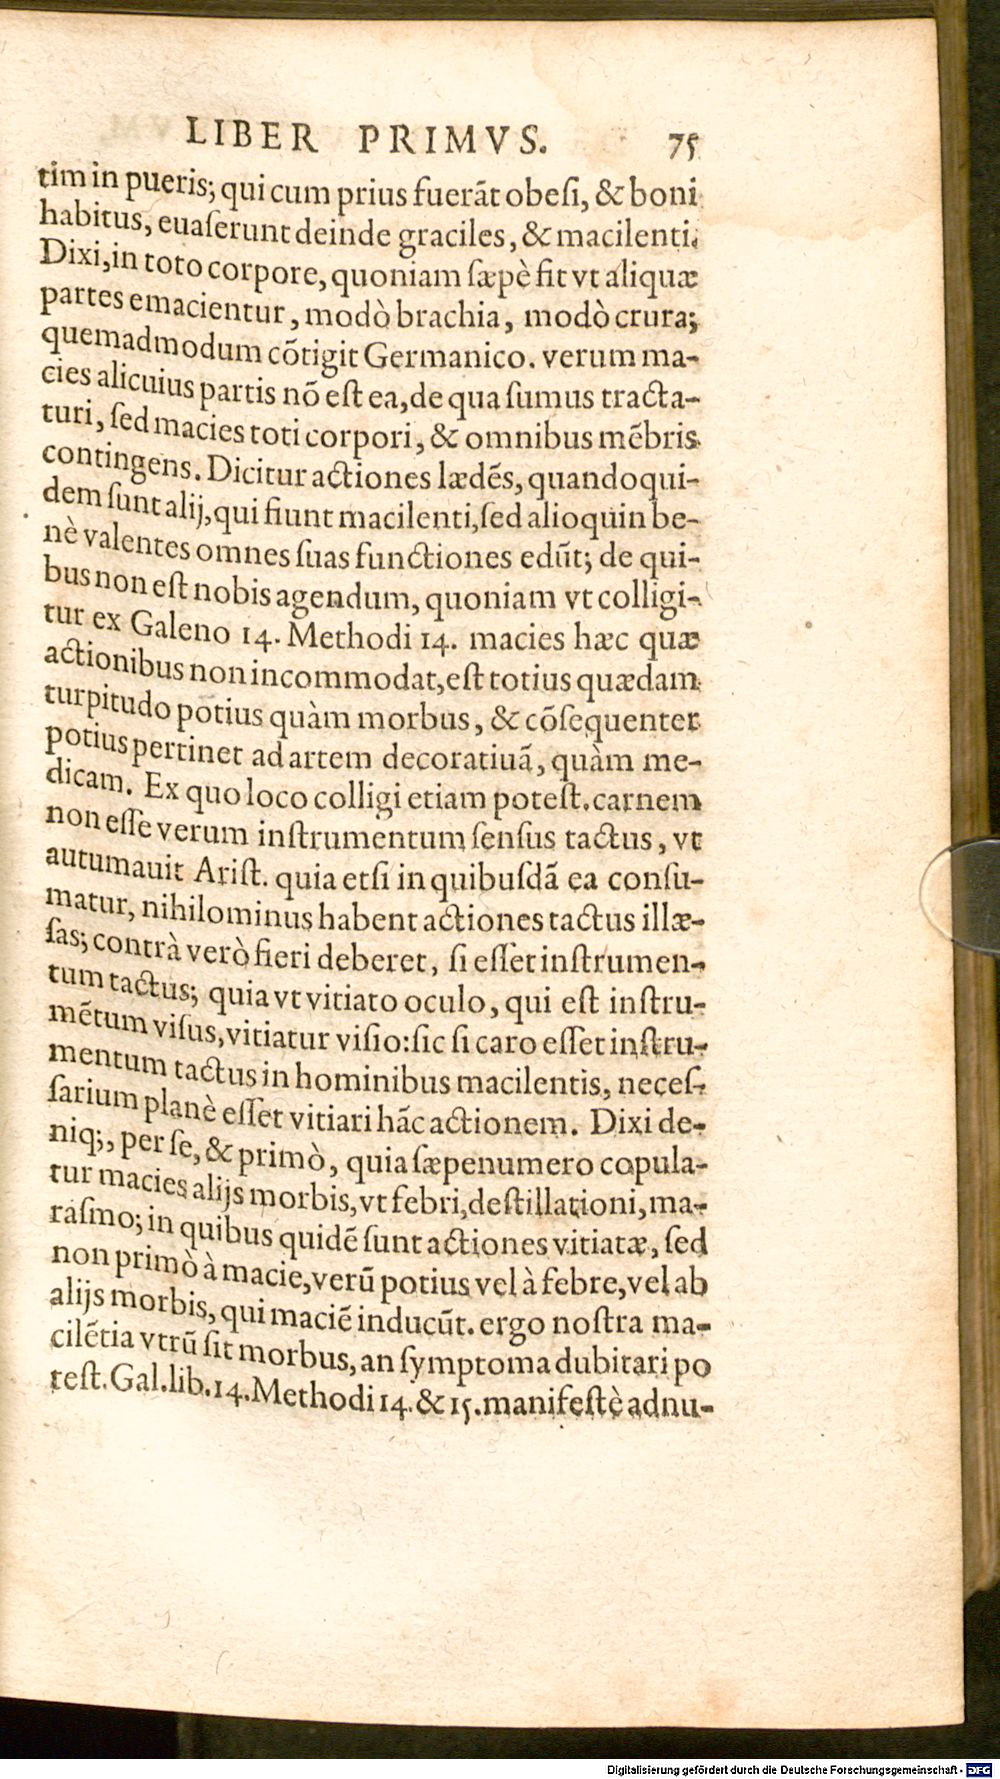 LIBER PRIMVS. 75
tim in pueris; qui cum prius fuerãt obeſi, & boni
habitus, euaſerunt deinde graciles, & macilenti.
Dixi, in toto corpore, quoniam ſæpè fit vt aliquæ
partes emacientur, modò brachia, modò crura;
quemadmodum cõtigit Germanico. verum ma-
cies alicuius partis nõ eſt ea, de qua ſumus tracta-
turi, ſed macies toti corpori, & omnibus mẽbris
contingens. Dicitur actiones lædẽs, quandoqui-
dem ſunt alij, qui fiunt macilenti, ſed alioquin be-
nè valentes omnes ſuas functiones edũt; de qui-
bus non eſt nobis agendum, quoniam vt colligi-
tur ex Galeno 14. Methodi 14. macies hæc quæ
actionibus non incommodat, eſt totius quædam
turpitudo potius quàm morbus, & cõſequenter
potius pertinet ad artem decoratiuã, quàm me-
dicam. Ex quo loco colligi etiam poteſt. carnem
non eſſe verum inſtrumentum ſenſus tactus, vt
autumauit Ariſt. quia etſi in quibuſdã ea conſu-
matur, nihilominus habent actiones tactus illæ-
ſas; contrà verò fieri deberet, ſi eſſet inſtrumen-
tum tactus; quia vt vitiato oculo, qui eſt inſtru-
mẽtum viſus, vitiatur viſio: ſic ſi caro eſſet inſtru-
mentum tactus in hominibus macilentis, neceſ-
ſarium planè eſſet vitiari hãc actionem. Dixi de-
niq;, per ſe, & primò, quia ſæpenumero copula-
tur macies alijs morbis, vt febri, deſtillationi, ma-
raſmo; in quibus quidẽ ſunt actiones vitiatæ, ſed
non primò à macie, verũ potius vel à febre, vel ab
alijs morbis, qui maciẽ inducũt. ergo noſtra ma-
cilẽtia vtrũ ſit morbus, an ſymptoma dubitari po
teſt. Gal. lib. 14. Methodi 14. & 15. manifeſtè adnu-
Digitalisierung gefördert durch die Deutsche Forschungsgemeinschaft - DFG